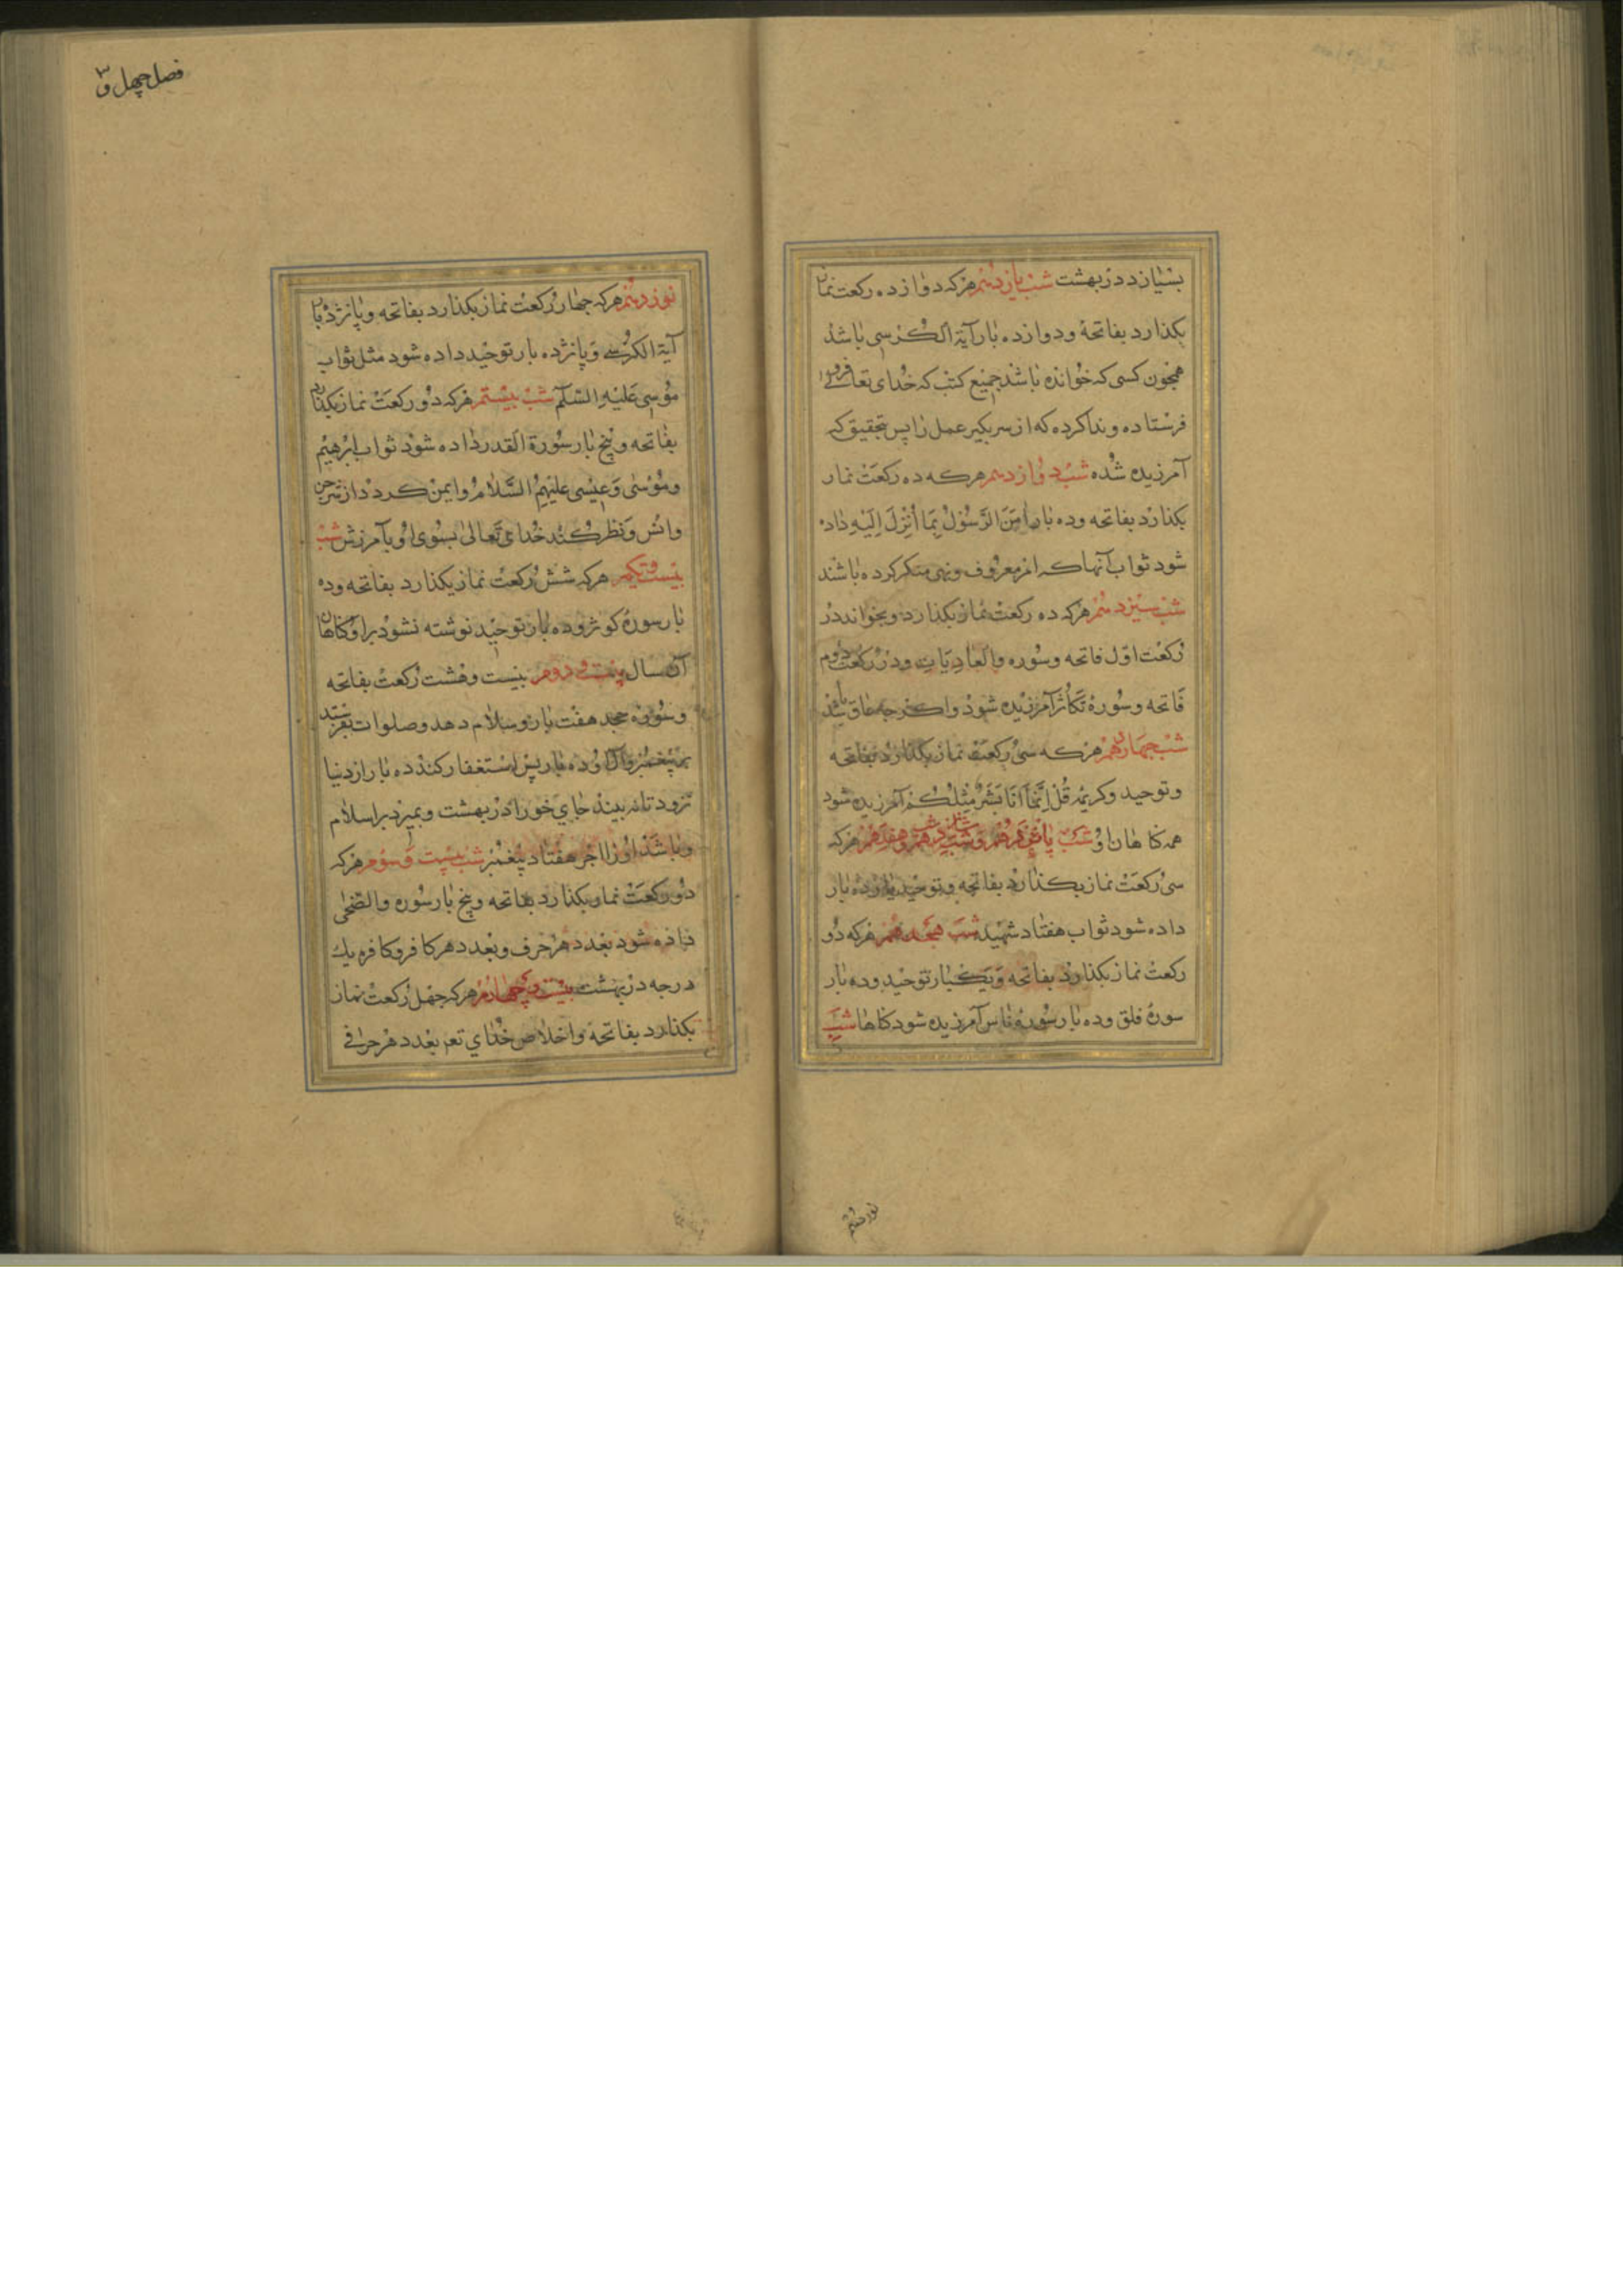 بسیار در بهشت شب یازدهم هرکه دوازده رکعت نماز
بکذارد بفاتحهٔ ودوازده بار آیة الکرسی باشد
همچون کسی که خوانده باشد جمیع کتب که خدای تعالی فرو
فرستاده وندا کرده که از سر بکیر عمل را پس بتحقیق که
آمرزیده شده شب دوازدهم هرکه ده رکعت نماز
بکذارد بفاتحه وده بار اٰمَنَ الرَّسُوْلُ بِمَا اُنْزِلَ اِلَیْهِ داده
شود ثواب آنها که امر معروف ونهی منکر کرده باشند
شب سیزدهم هرکه ده رکعت نماز بکذارد وبخواند در
رکعت اوّل فاتحه وسوره والعادیات ودر رکعت دوم
فاتحه وسورهٔ تکاثر آمرزیده شود واکرچه عاق باشد
شب چهاردهم هرکه سی رکعت نماز بکذارد بفاتحه
وتوحید وکریمهٔ قُلْ اِنَّمَا اَنَا بَشَرٌ مِثْلُکُمْ آمرزیده شود
همه کناهان او شب پانزدهم وشب شانزدهم وشب هفدهم هرکه
سی رکعت نماز بکذارد بفاتحه وتوحید یازده بار
داده شود ثواب هفتاد شهید شب هجدهم هرکه دو
رکعت نماز بکذارد بفاتحه ویکبار توحید وده بار
سورهٔ فلق وده بار سورهٔ ناس آمرزیده شود کناهان شب
نوزدهم
فصل چهل و۳
نوزدهم هرکه چهار رکعت نماز بکذارد بفاتحه وپانزده بار
آیة الکرسی وپانزده بار توحید داده شود مثل ثواب
موسی علیه السلام شب بیستم هرکه دو رکعت نماز بکذارد
بفاتحه وپنج بار سورة القدر داده شود ثواب ابرهیم
وموسی وعیسی علیهم السلام وایمن کردد از شر جن
وانس ونظر کند خدای تعالی بسوی او بآمرزش شب
بیست ویکم هرکه شش رکعت نماز بکذارد بفاتحه وده
بار سورهٔ کوثر وده بار توحید نوشته نشود بر او کناهان
آن سال بیست ودوم بیست وهشت رکعت بفاتحه
وسوره جحد هفت بار وسلام دهد وصلوات بفرستد
بر پیغمبر وآل او ده بار پس استغفار کند ده بار از دنیا
نرود تا نه بیند جای خود را در بهشت وبمیرد بر اسلام
وباشد او را اجر هفتاد پیغمبر شب بیست وسوم هرکه
دو رکعت نماز بکذارد بفاتحه وپنج بار سوره والضحی
داده شود بعدد هر حرف وبعدد هر کافر وکافره یك
درجه در بهشت بیست وچهارم هرکه چهل رکعت نماز
بکذارد بفاتحهٔ واخلاص خدای تعم بعدد هر حرفی